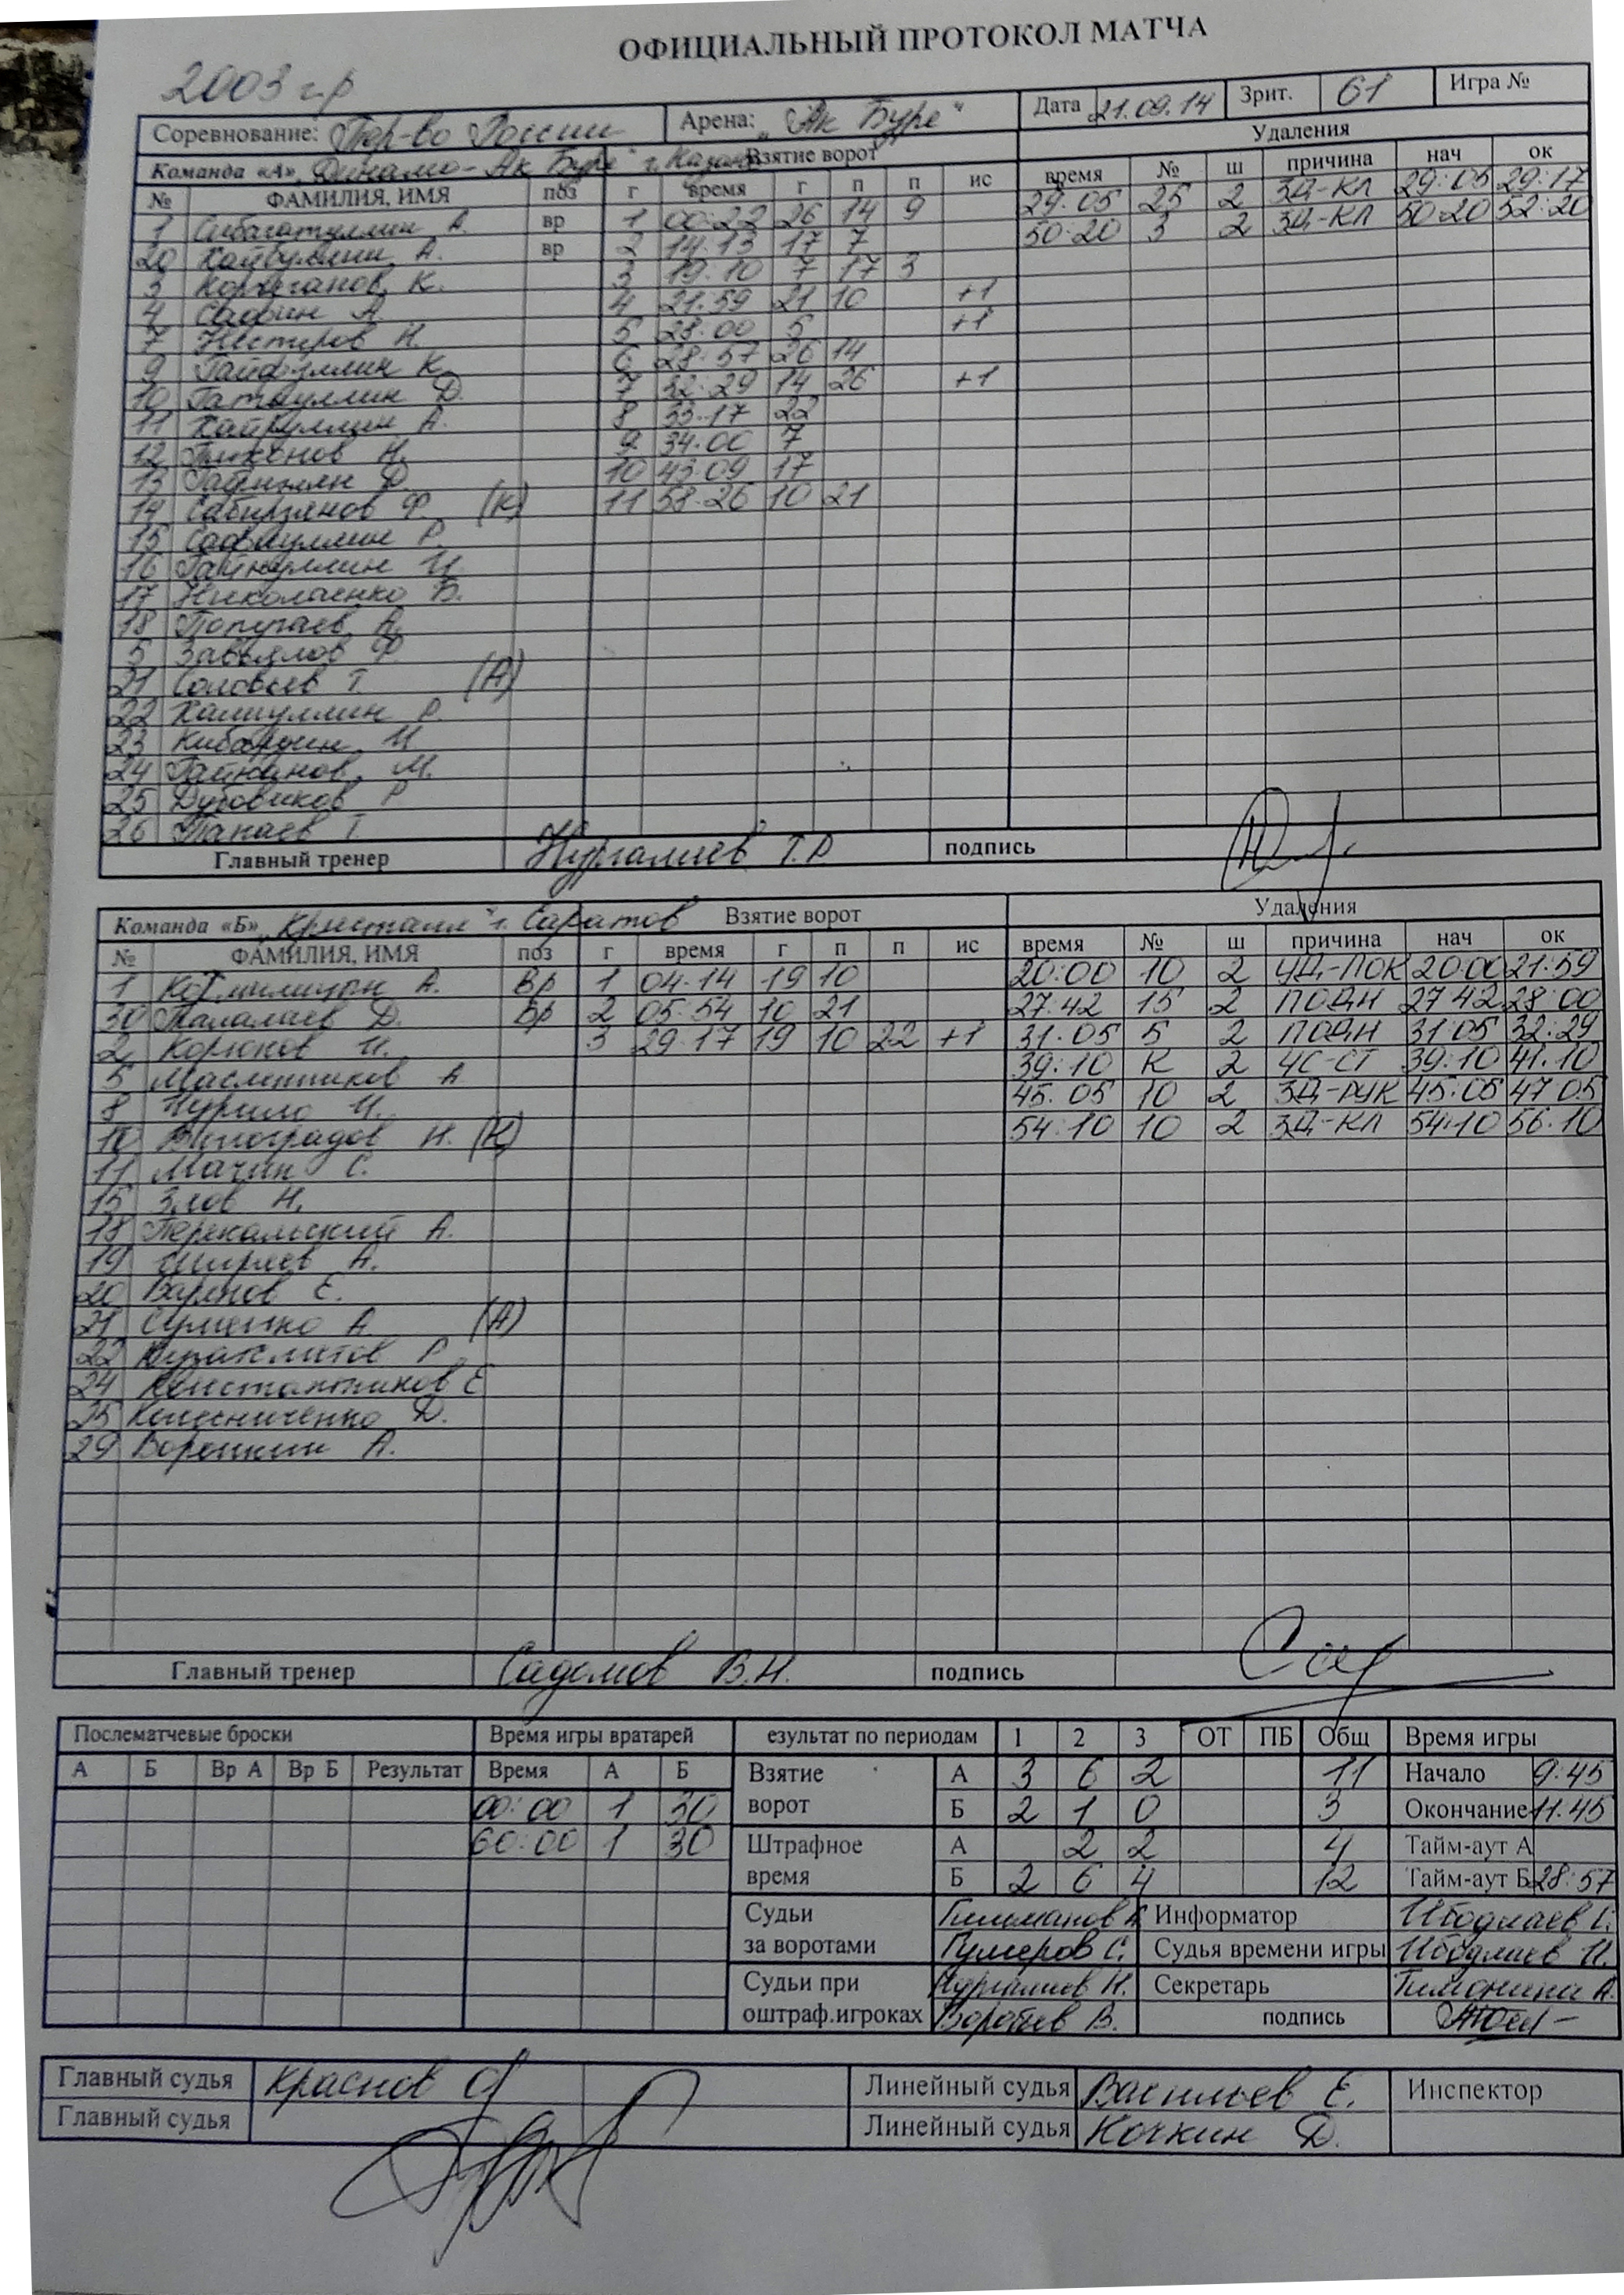 ОФИЦИАЛЬНЫЙ ПРОТОКОЛ МАТЧА
2003 г.р
Соревнование: Пер-во России Арена: "Ак Буре" Дата 21.09.14 Зрит. 61 Игра №
Команда «А» "Динамо-Ак Буре" г. Казань Взятие ворот Удаления
№ ФАМИЛИЯ, ИМЯ поз г время г п п ис время № ш причина нач ок
1 Сибагатуллин А. вр 1 00:22 26 14 9 29:05 25 2 ЗД-КЛ 29:05 29:17
20 Хайбуллин А. вр 2 14:13 17 7 50:20 3 2 ЗД-КЛ 50:20 52:20
3 К. 3 19:10 7 17 3
4 Сафин А. 4 21:59 21 10 +1
7 Нестеров Н. 5 28:00 5 +1
9 Гайфуллин К. 6 28:57 26 14
10 Гатауллин Д. 7 32:29 14 26 +1
11 Хайруллин А. 8 33:17 22
12 Тихонов Н. 9 34:00 7
13 Д. 10 43:09 17
14 Сабирзянов Ф. (К) 11 58:26 10 21
15 Садауллин Р.
16 Гайнуллин И.
17 Николаенко Б.
18 Попугаев А.
5 Завьялов Ф.
21 Соловьев Т. (А)
22 Р.
23 Кибардин И
24 Гайнанов М.
25 Дубовиков Р
26 Панаев Т.
Главный тренер Нургалиев Т.Р. подпись
Команда «Б» "Кристалл" г. Саратов Взятие ворот Удаления
№ ФАМИЛИЯ, ИМЯ поз г время г п п ис время № ш причина нач ок
1 А. Вр 1 04:14 19 10 20:00 10 2 УД-ЛОК 20:00 21:59
30 Талалаев Д. Вр 2 05:54 10 21 27:42 15 2 ПОДН 27:42 28:00
2 Корюков И. 3 29:17 19 10 22 +1 31:05 5 2 ПОДН 31:05 32:29
5 Масленников А 39:10 К 2 ЧС-СТ 39:10 41:10
8 Чурило И. 45:05 10 2 ЗД-РУК 45:05 47:05
10 Виноградов Н. (К) 54:10 10 2 ЗД-КЛ 54:10 56:10
11 Мачин С.
15 Злов Н.
18 Перекальский А.
19 Ширяев А.
20 Варнов Е.
21 Сущенко А. (А)
22 Р.
24 Константинов Е
25 Колесниченко Д.
29 Воронин А.
Главный тренер Садомов В.Н. подпись
Послематчевые броски Время игры вратарей езультат по периодам 1 2 3 ОТ ПБ Общ Время игры
А Б Вр А Вр Б Результат Время А Б Взятие А 3 6 2 11 Начало 9:45
00:00 1 30 ворот Б 2 1 0 3 Окончание 11:45
60:00 1 30 Штрафное А 2 2 4 Тайм-аут А
время Б 2 6 4 12 Тайм-аут Б 28:57
Судьи Информатор
за воротами Гумеров С. Судья времени игры
Судьи при Н. Секретарь Тимонина А.
оштраф.игроках Воробьев В. подпись
Главный судья Краснов О Линейный судья Васильев Е. Инспектор
Главный судья Линейный судья Кочкин Д.